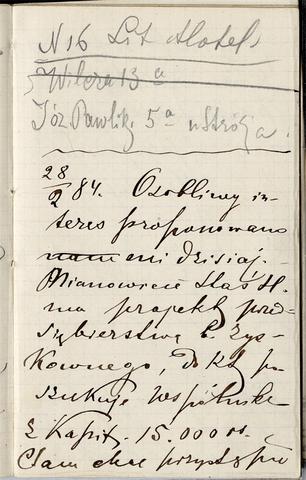 N 16 Lit Hotel
Wilcza 13 a
Józ. Pawlik. 5a u Stróża.
28/2 84. Osobliwy in-
teres proponowano
mi dzisiaj.
Mianowicie Staś H.
ma projekt przed-
siębierstwa b. zys-
kownego, do kt. po
szukuje wspólnika
z Kapit. 15.000 rs.
Sam chce przystąpić